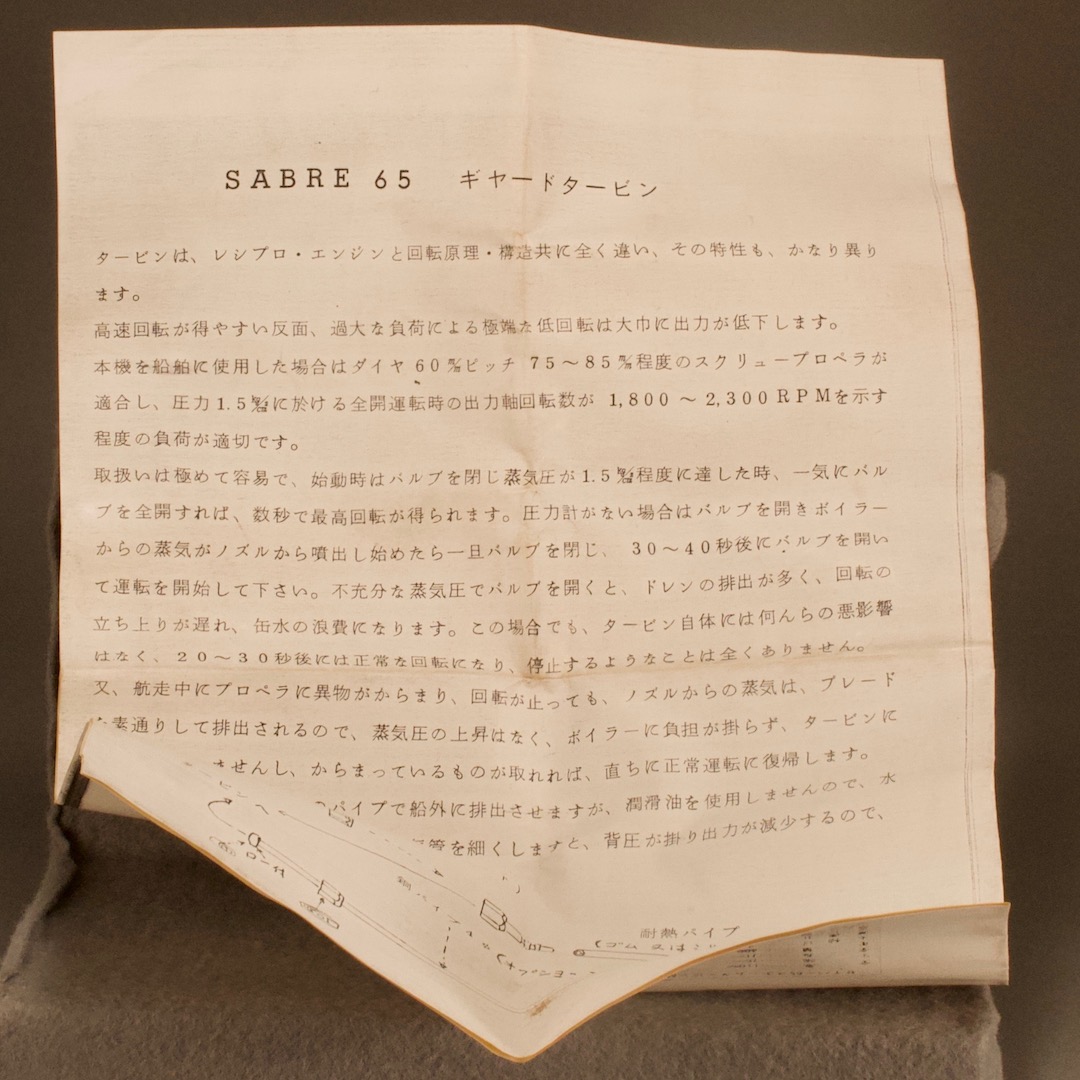 SABRE 65 ギヤードタービン
タービンは、レシプロ・エンジンと回転原理・構造共に全く違い、その特性も、かなり異り
ます。
高速回転が得やすい反面、過大な負荷による極端な低回転は大巾に出力が低下します。
本機を船舶に使用した場合はダイヤ60㎜ピッチ 75〜85㎜程度のスクリュープロペラが
適合し、圧力1.5に於ける全開運転時の出力軸回転数が 1,800〜2,300RPMを示す
程度の負荷が適切です。
取扱いは極めて容易で、始動時はバルブを閉じ蒸気圧が1.5程度に達した時、一気にバル
ブを全開すれば、数秒で最高回転が得られます。圧力計がない場合はバルブを開きボイラー
からの蒸気がノズルから噴出し始めたら一旦バルブを閉じ、30〜40秒後にバルブを開い
て運転を開始して下さい。不充分な蒸気圧でバルブを開くと、ドレンの排出が多く、回転の
立ち上りが遅れ、缶水の浪費になります。この場合でも、タービン自体には何んらの悪影響
はなく、20〜30秒後には正常な回転になり、停止するようなことは全くありません。
又、航走中にプロペラに異物がからまり、回転が止っても、ノズルからの蒸気は、ブレード
素通りして排出されるので、蒸気圧の上昇はなく、ボイラーに負担が掛らず、タービンに
ませんし、からまっているものが取れれば、直ちに正常運転に復帰します。
パイプで船外に排出させますが、潤滑油を使用しませんので、水
管を細くしますと、背圧が掛り出力が減少するので、
耐熱パイプ